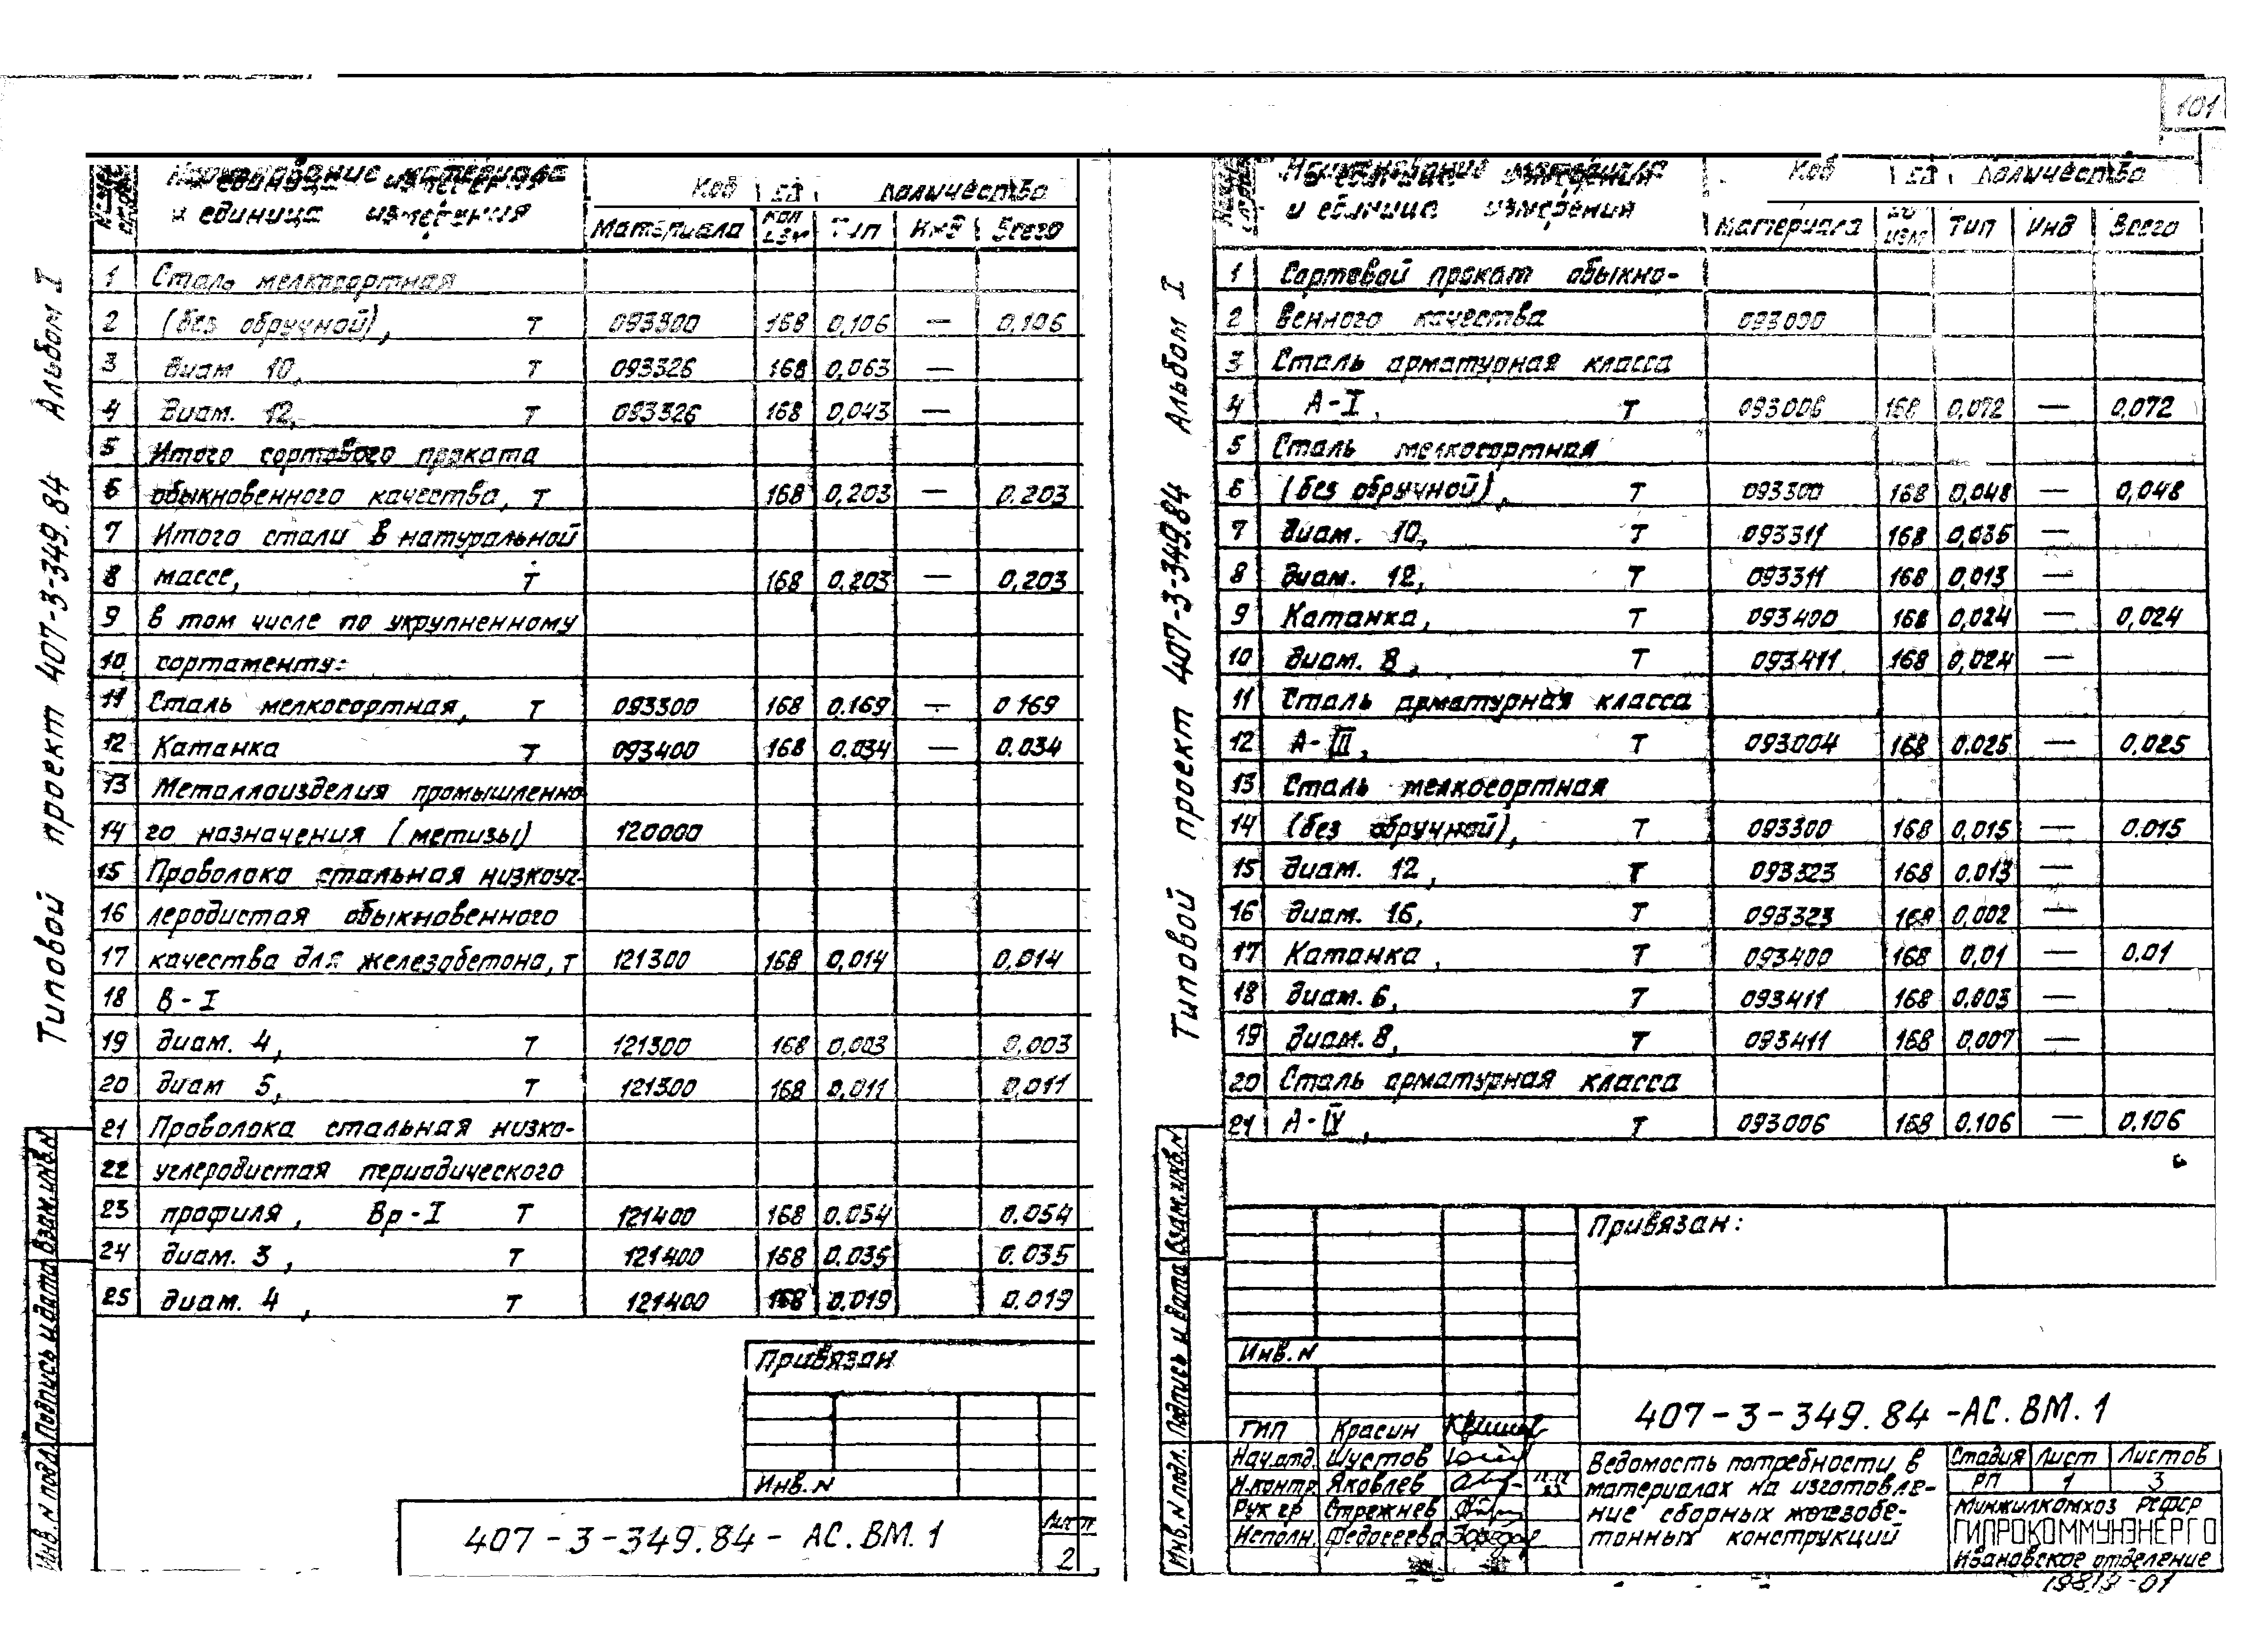 101
Типовой проект 407-3-349.84 Альбом I
Наименование материала и единица измерения Код Количество
материала Тип Инд Всего
1 Сталь мелкосортная
2 (без обручной), Т 093300 168 0,106 — 0,106
3 диам 10, Т 093326 168 0,063 —
4 диам. 12, Т 093326 168 0,043 —
5 Итого сортового проката
6 обыкновенного качества, Т 168 0,203 — 0.203
7 Итого стали в натуральной
8 массе, Т 168 0.203 — 0.203
9 в том числе по укрупненному
10 сортаменту:
11 Сталь мелкосортная, Т 093300 168 0.169 — 0 169
12 Катанка Т 093400 168 0.034 — 0.034
13 Металлоизделия промышленно
14 го назначения (метизы) 120000
15 Проволока стальная низкоуг-
16 леродистая обыкновенного
17 качества для железобетона, т 121300 168 0,014 0,014
18 В-I
19 диам. 4, Т 121300 168 0,003 0,003
20 диам 5, Т 121300 168 0,011 0,011
21 Проволока стальная низко-
22 углеродистая периодического
23 профиля, Вр-I Т 121400 168 0.054 0.054
24 диам. 3, Т 121400 168 0.035 0.035
25 диам. 4, Т 121400 168 0.019 0.019
Привязан
Инв. N
407-3-349.84-АС.ВМ.1
Лист
2
Инв. N подл. Подпись и дата Взам. инв. N
Типовой проект 407-3-349.84 Альбом I
Наименование материала и единица измерения Код Количество
материала Тип Инд Всего
1 Сортовой прокат обыкно-
2 венного качества 093000
3 Сталь арматурная класса
4 А-I, Т 093006 168 0,072 — 0,072
5 Сталь мелкосортная
6 (без обручной), Т 093300 168 0,048 — 0,048
7 диам. 10, Т 093311 168 0,035 —
8 диам. 12, Т 093311 168 0,013 —
9 Катанка, Т 093400 168 0,024 — 0,024
10 диам. 8, Т 093411 168 0,024 —
11 Сталь арматурная класса
12 А-III, Т 093004 168 0.025 — 0.025
13 Сталь мелкосортная
14 (без обручной), Т 093300 168 0,015 — 0.015
15 диам. 12, Т 093323 168 0.013 —
16 диам. 16, Т 093323 168 0,002 —
17 Катанка, Т 093400 168 0,01 — 0.01
18 диам. 6, Т 093411 168 0.003 —
19 диам. 8, Т 093411 168 0,007 —
20 Сталь арматурная класса
21 А-IV, Т 093006 168 0.106 — 0.106
Привязан:
Инв. N
407-3-349.84-АС.ВМ.1
ГИП Красин
Нач.отд. Шустов
Н.контр. Яковлев
Рук гр Стрежнев
Исполн. Федосеева
Ведомость потребности в
материалах на изготовле-
ние сборных железобе-
тонных конструкций
Стадия Лист Листов
РП 1 3
Минжилкомхоз РСФСР
ГИПРОКОММУНЭНЕРГО
Ивановское отделение
Инв. N подл. Подпись и дата Взам. инв. N
19819-01